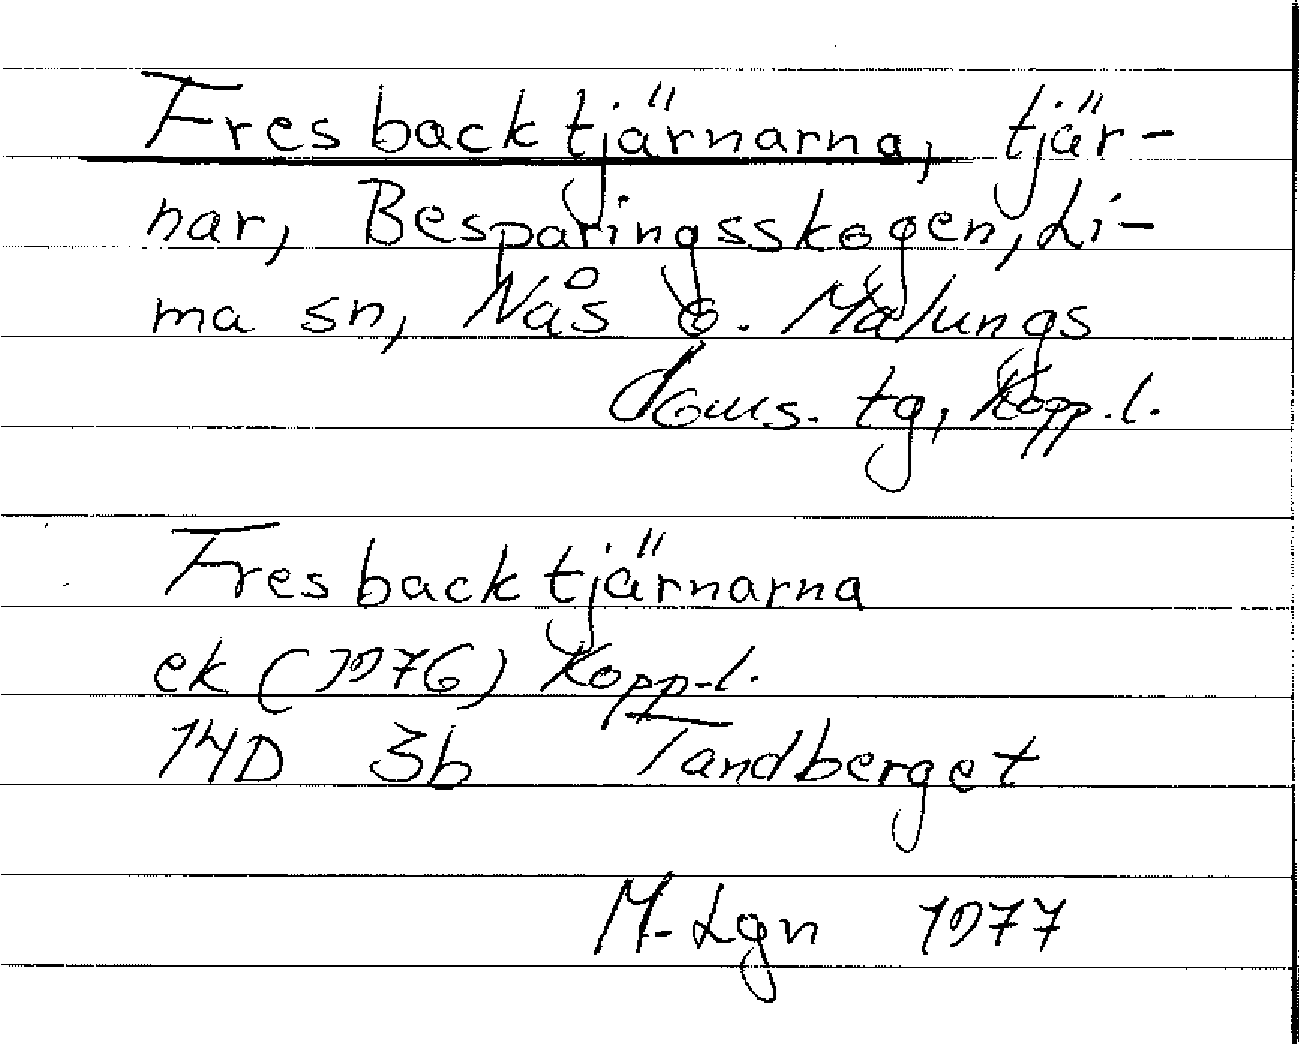 Fresbacktjärnarna, tjär-
nar, Besparingsskogen, Li-
ma sn, Nås o. Malungs
doms. tg, Kopp.l.
Fresbacktjärnarna
ek (1976) Kopp.l.
14D 3b Tandberget
M. Lgn 1977